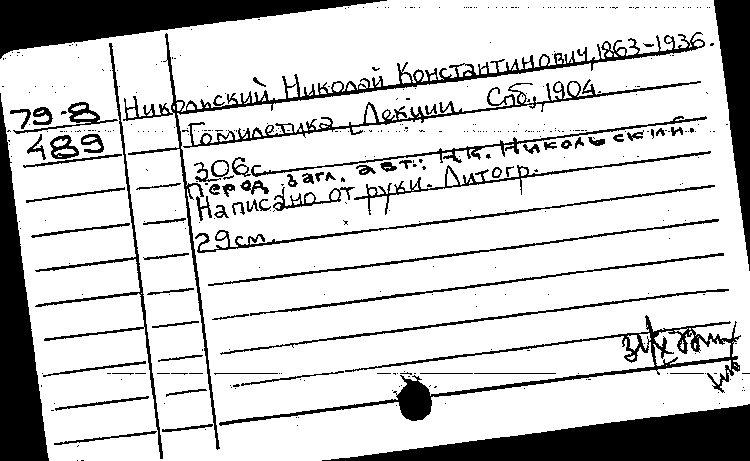 79-8
489
Никольский, Николай Константинович, 1863-1936.
Гомилетика. Лекции. Спб., 1904.
306 с.
Перед загл. авт.: Н.К. Никольский.
Написано от руки. Литогр.
29 см.